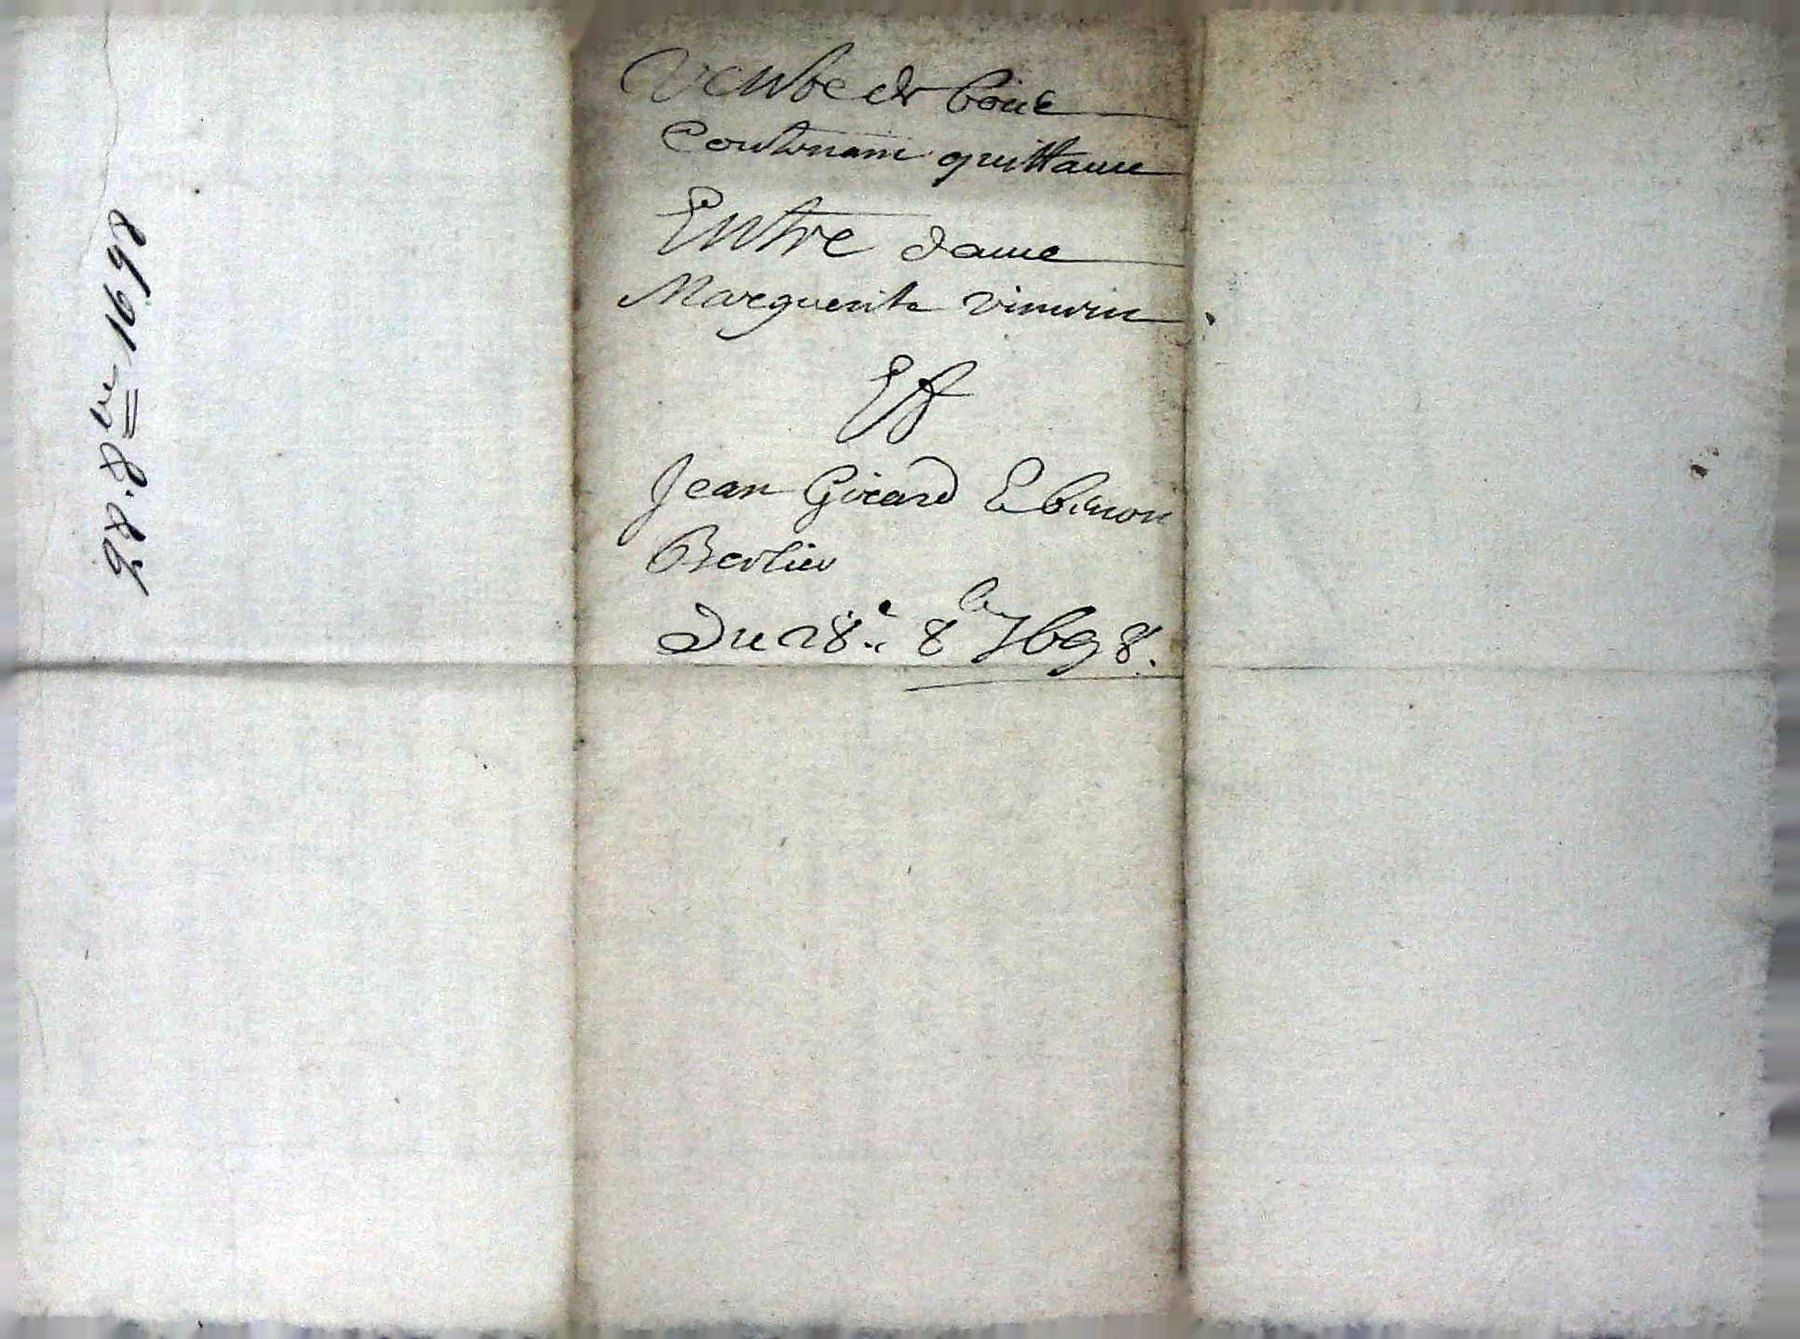 Vente de bois
Contenant quittance
Entre dame
Marguerite
Et
Jean Girard Et
Berlier
Du 28e 8b 1698.
28. 8bre 1698